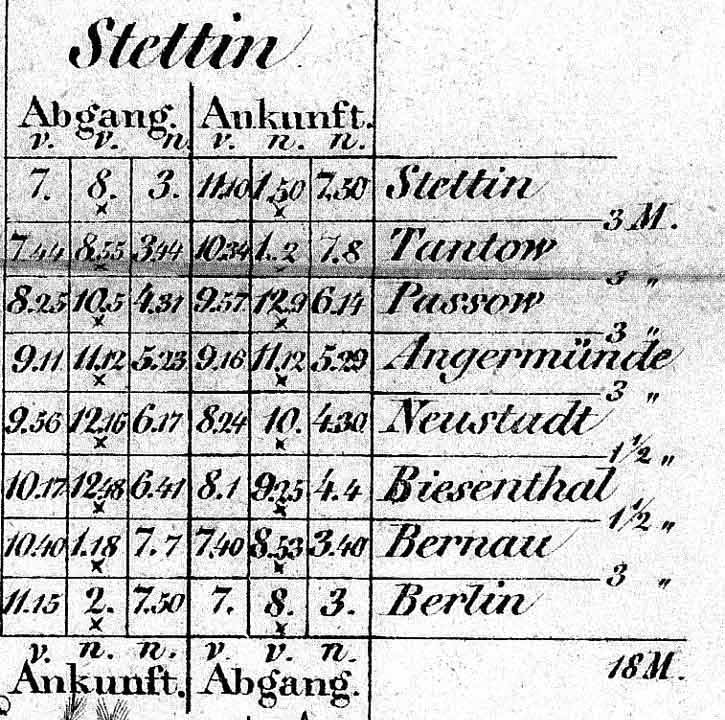 Stettin
Abgang. Ankunft.
v. v. n. v. n. n.
7. 8. 3. 11.10 1.50 7.50 Stettin
× ×
3 M.
7.44 8.55 3.44 10.34 1.2 7.8 Tantow
× ×
3 "
8.25 10.5 4.31 9.57 12.9 6.14 Passow
× ×
3 "
9.11 11.12 5.23 9.16 11.12 5.29 Angermünde
× ×
3 "
9.56 12.16 6.17 8.24 10. 4.30 Neustadt
× ×
1½ "
10.17 12.48 6.41 8.1 9.25 4.4 Biesenthal
× ×
1½ "
10.40 1.18 7.7 7.40 8.53 3.40 Bernau
× ×
3 "
11.15 2. 7.50 7. 8. 3. Berlin
× ×
v. n. n. v. v. n.
18 M.
Ankunft. Abgang.